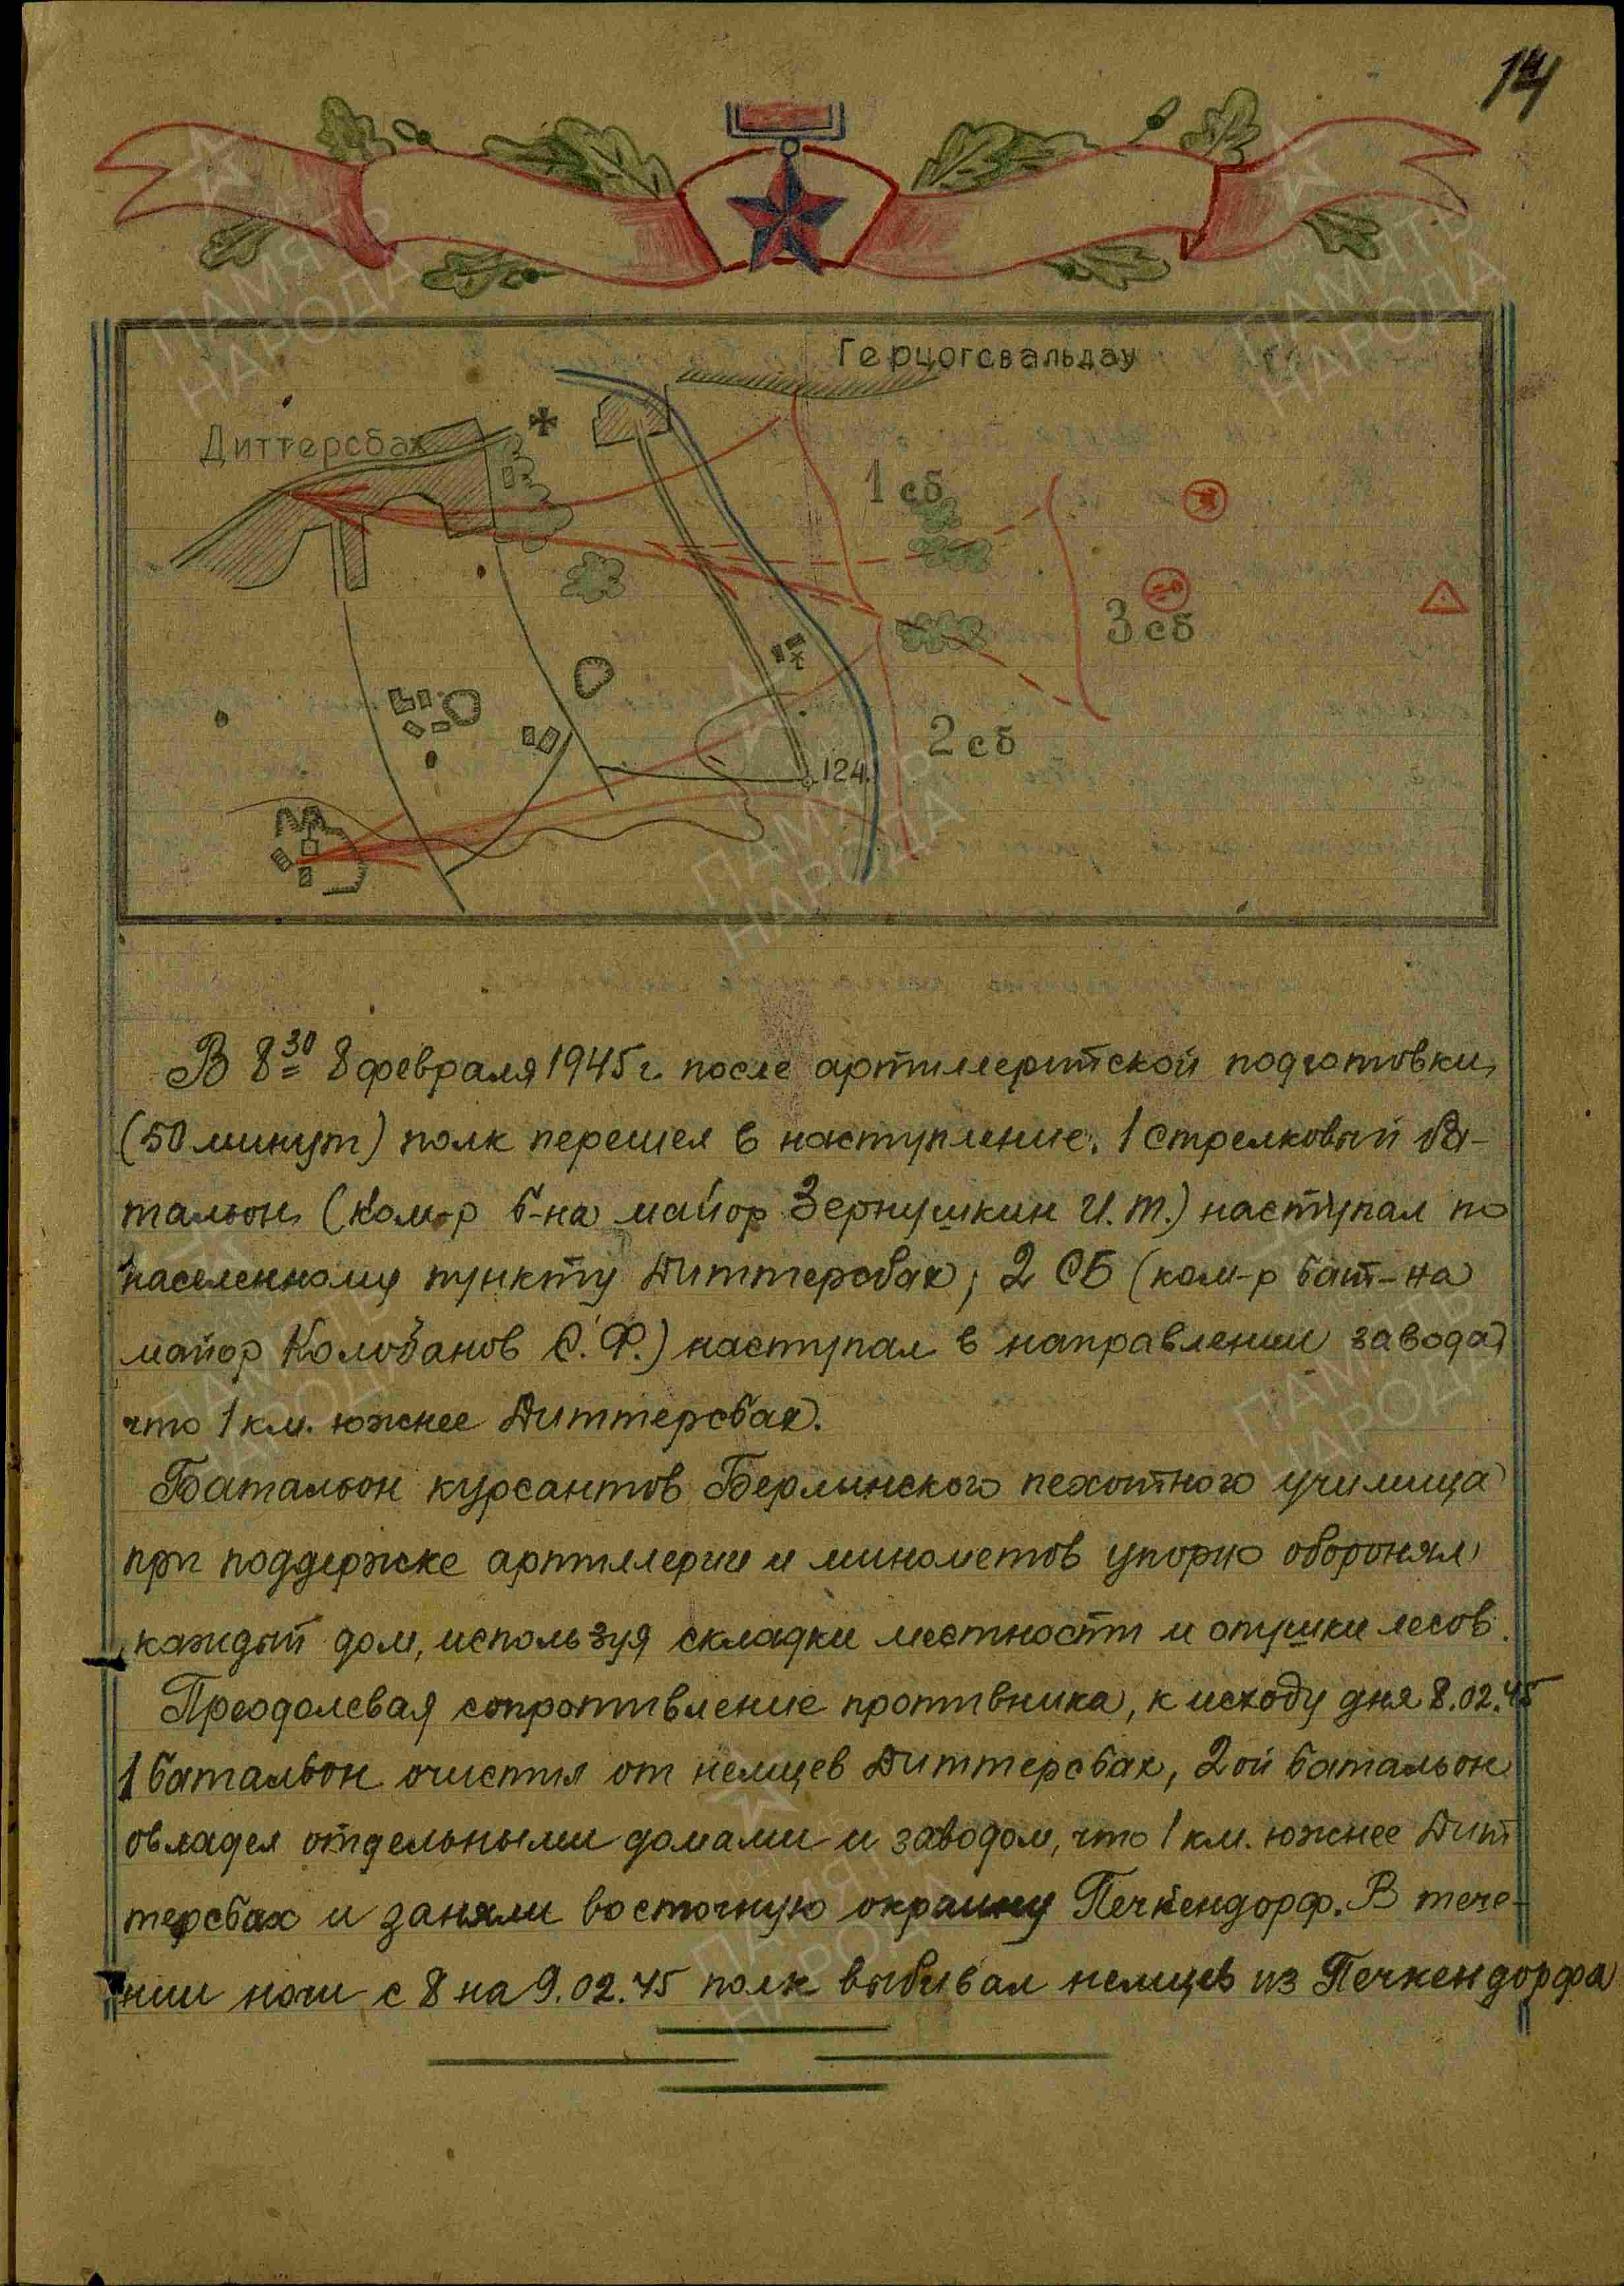 14
Герцогсвальдау
Диттерсбах
1 сб
3 сб
2 сб
124.
В 8³⁰ 8 февраля 1945 г. после артиллерийской подготовки
(50 минут) полк перешел в наступление. 1 стрелковый ба-
тальон (ком-р б-на майор Зернушкин И.Т.) наступал по
населенному пункту Диттерсбах, 2 СБ (ком-р бат-на
майор Колобанов С.Ф.) наступал в направлении завода
что 1 км. южнее Диттерсбах.
Батальон курсантов Берлинского пехотного училища
при поддержке артиллерии и минометов упорно оборонял
каждый дом, используя складки местности и опушки лесов.
Преодолевая сопротивление противника, к исходу дня 8.02.45
1 батальон очистил от немцев Диттерсбах, 2ой батальон
овладел отдельными домами и заводом, что 1 км. южнее Дит
терсбах и заняли восточную окраину Печкендорф. В тече-
нии ночи с 8 на 9.02.45 полк выбивал немцев из Печкендорфа
ПАМЯТЬ
НАРОДА
ПАМЯТЬ
НАРОДА
ПАМЯТЬ
НАРОДА
ПАМЯТЬ
НАРОДА
ПАМЯТЬ
НАРОДА
ПАМЯТЬ
НАРОДА